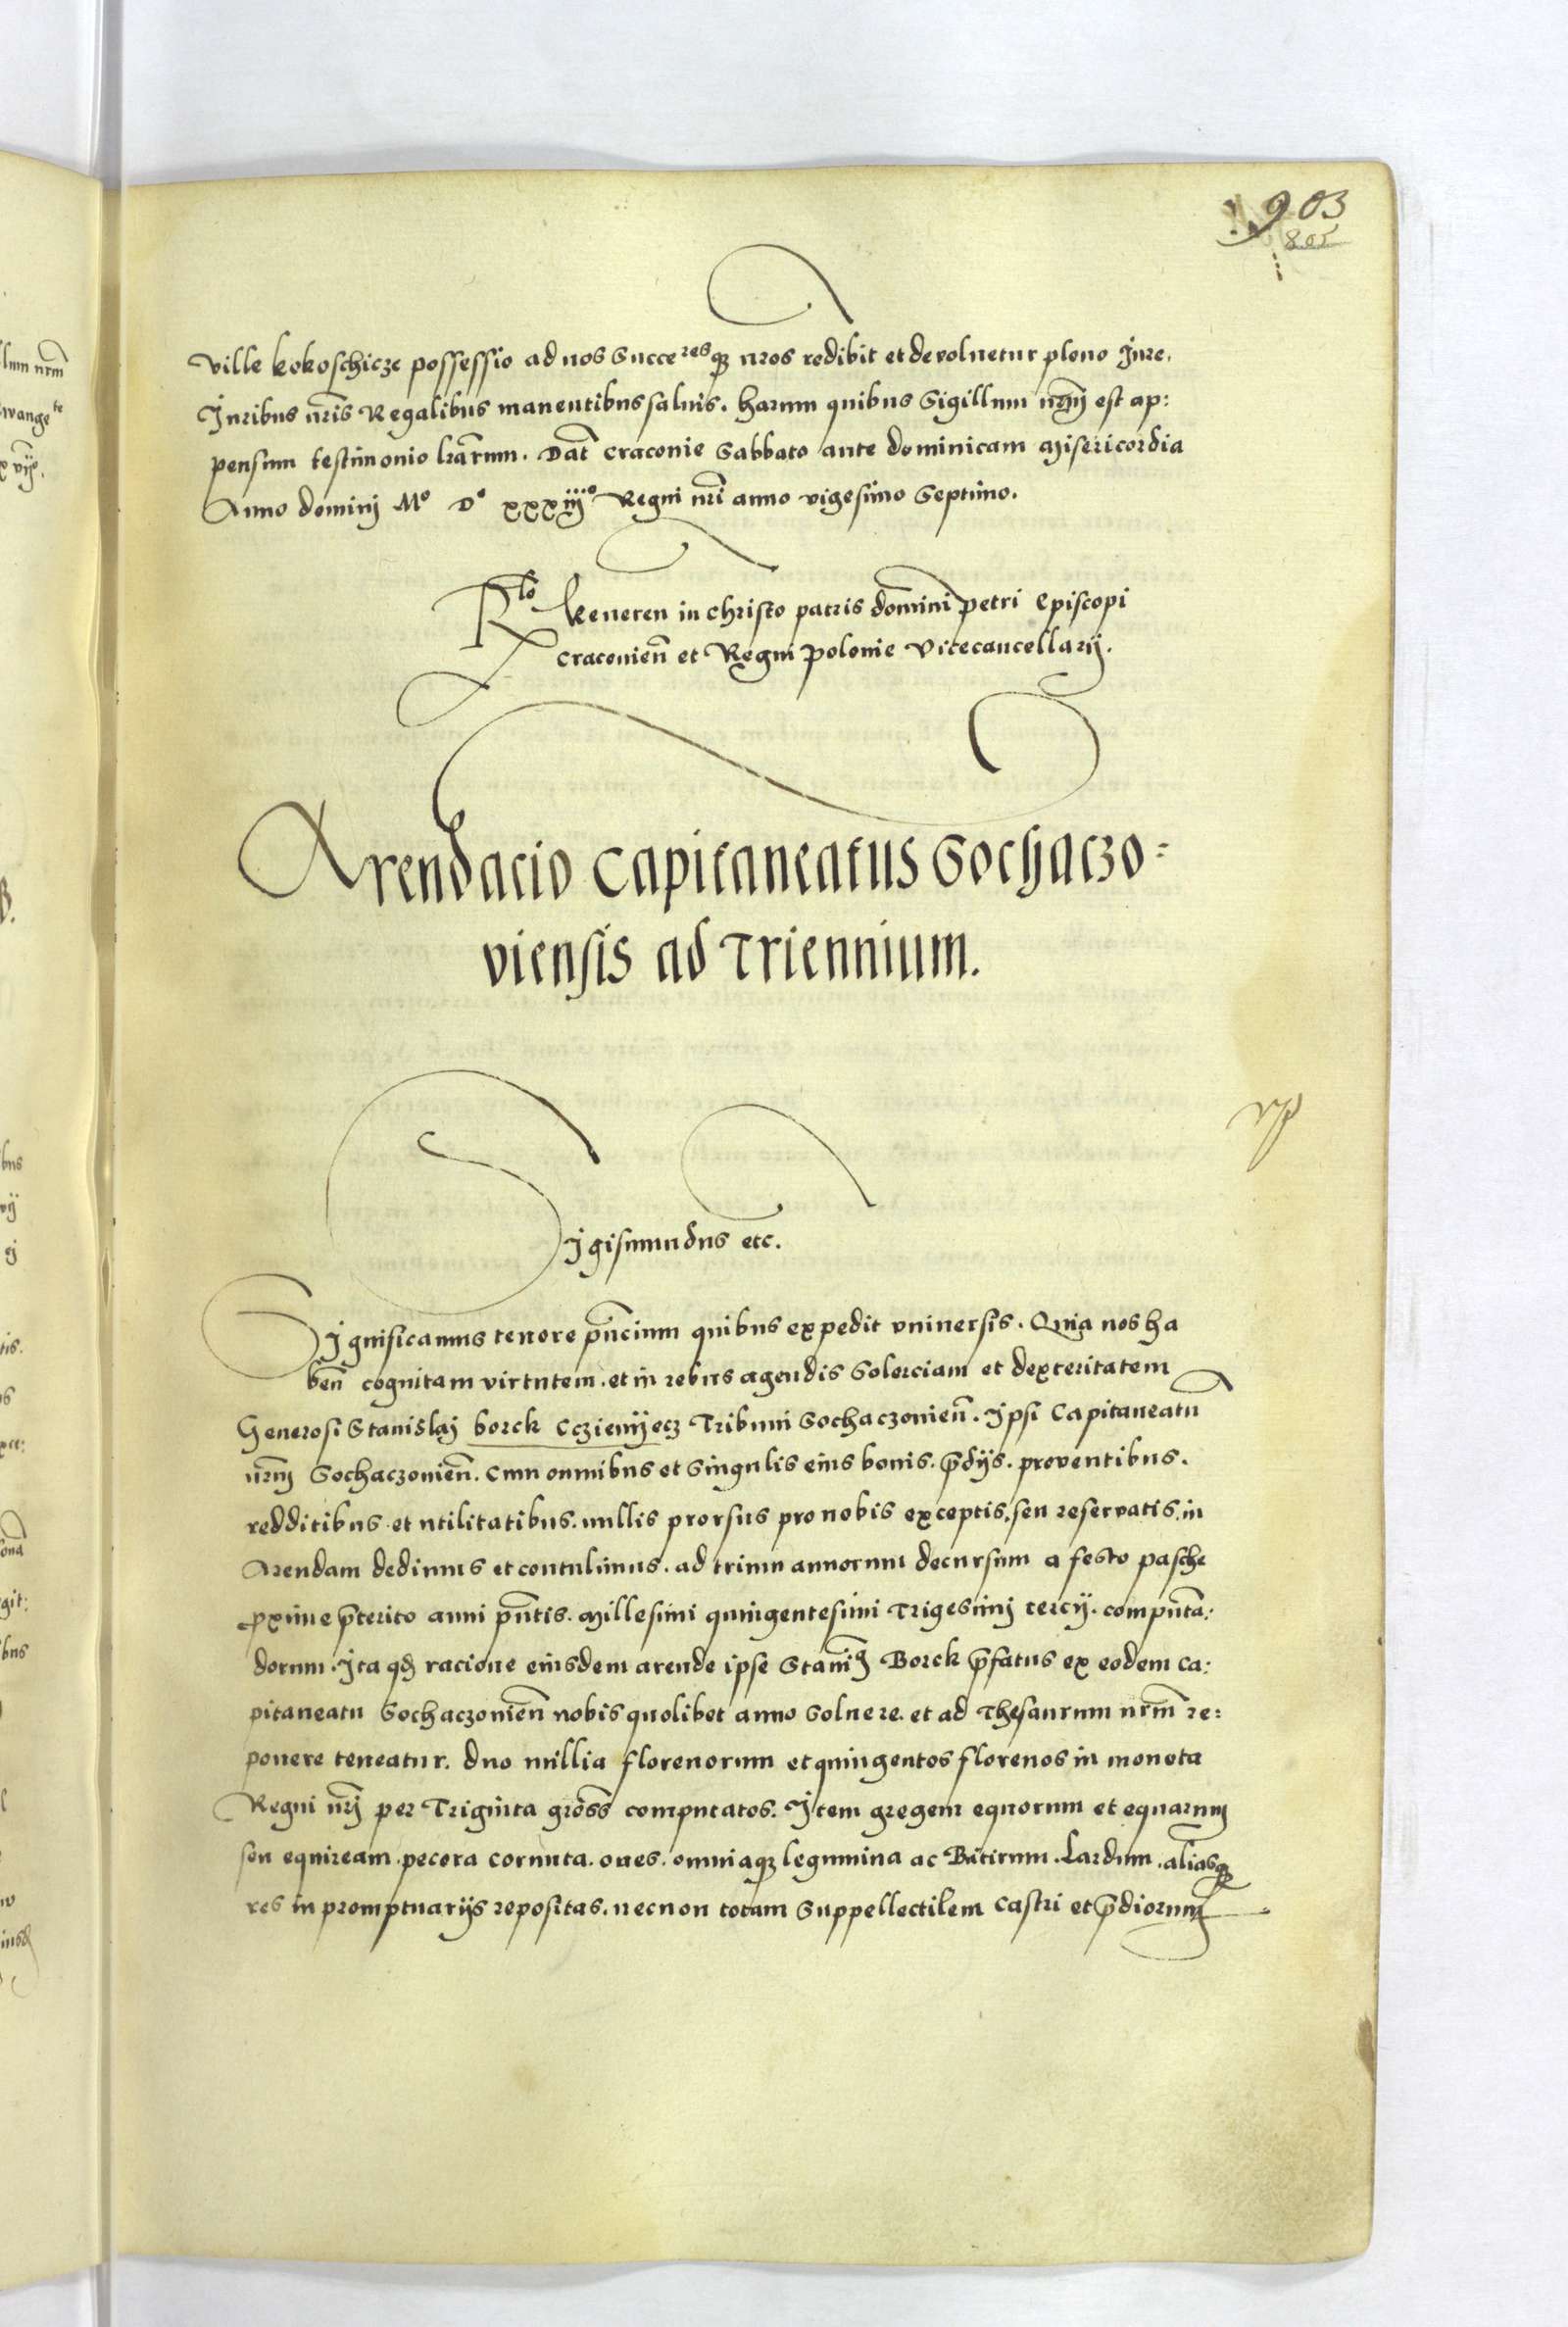 903
805
ville kokoschicze possessio ad nos Succe^res q₃ nr̃os redibit et devoluetur pleno Jure.
Juribus nr̃is Regalibus manentibus saluis. harum quibus Sigillum nr̃m est ap:
pensum testimonio lr̃arum. Dat̃ Cracouie Sabbato ante dominicam Misericordia
Anno dominj Mº Dº xxxiijº Regni nr̃i anno vigesimo Septimo.
R^lo Reueren in christo patris domini petri Episcopi
Cracouien̄ et Regni polonie Vicecancellarij.
Arendacio Capitaneatus Sochaczo=
viensis ad Triennium.
Sigismundus etc.
Significamus tenore pñcium quibus expedit vniuersis. Quia nos ha
ben̄ cognitam virtutem. et in rebus agendis Solerciam et dexteritatem
Generosi Stanislaj borck Tribuni Sochaczouien̄. Ipsi Capitaneatū
nr̃m Sochaczouien̄. cum omnibus et Singulis eius bonis. p̄dijs. prouentibus.
redditibus et utilitatibus. nullis prorsus pro nobis exceptis. seu reseruatis. in
Arendam dedimus et contulimus. ad trium annorum decursum a festo pasche
proxime p̄terito anni pñtis. Millesimi quingentesimi Trigesimj tercij. computā:
dorum. Ita qd̄ racione eiusdem arende ipse Stanis̄ Borck p̄fatus ex eodem ca:
pitaneatu Sochaczouien̄ nobis quolibet anno Soluere. et ad Thesaurum nr̃m re:
ponere teneatur. duo millia florenorum et quingentos florenos in moneta
Regni nr̃j per Triginta gross̄ computatos. Item gregem equorum et equarum
seu equiream. pecora cornuta. oues. omniaq₃ legumina ac Butirum. Lardum. aliasq₃
res in promptuarijs repositas. necnon totam Suppellectilem Castri et p̄diorum